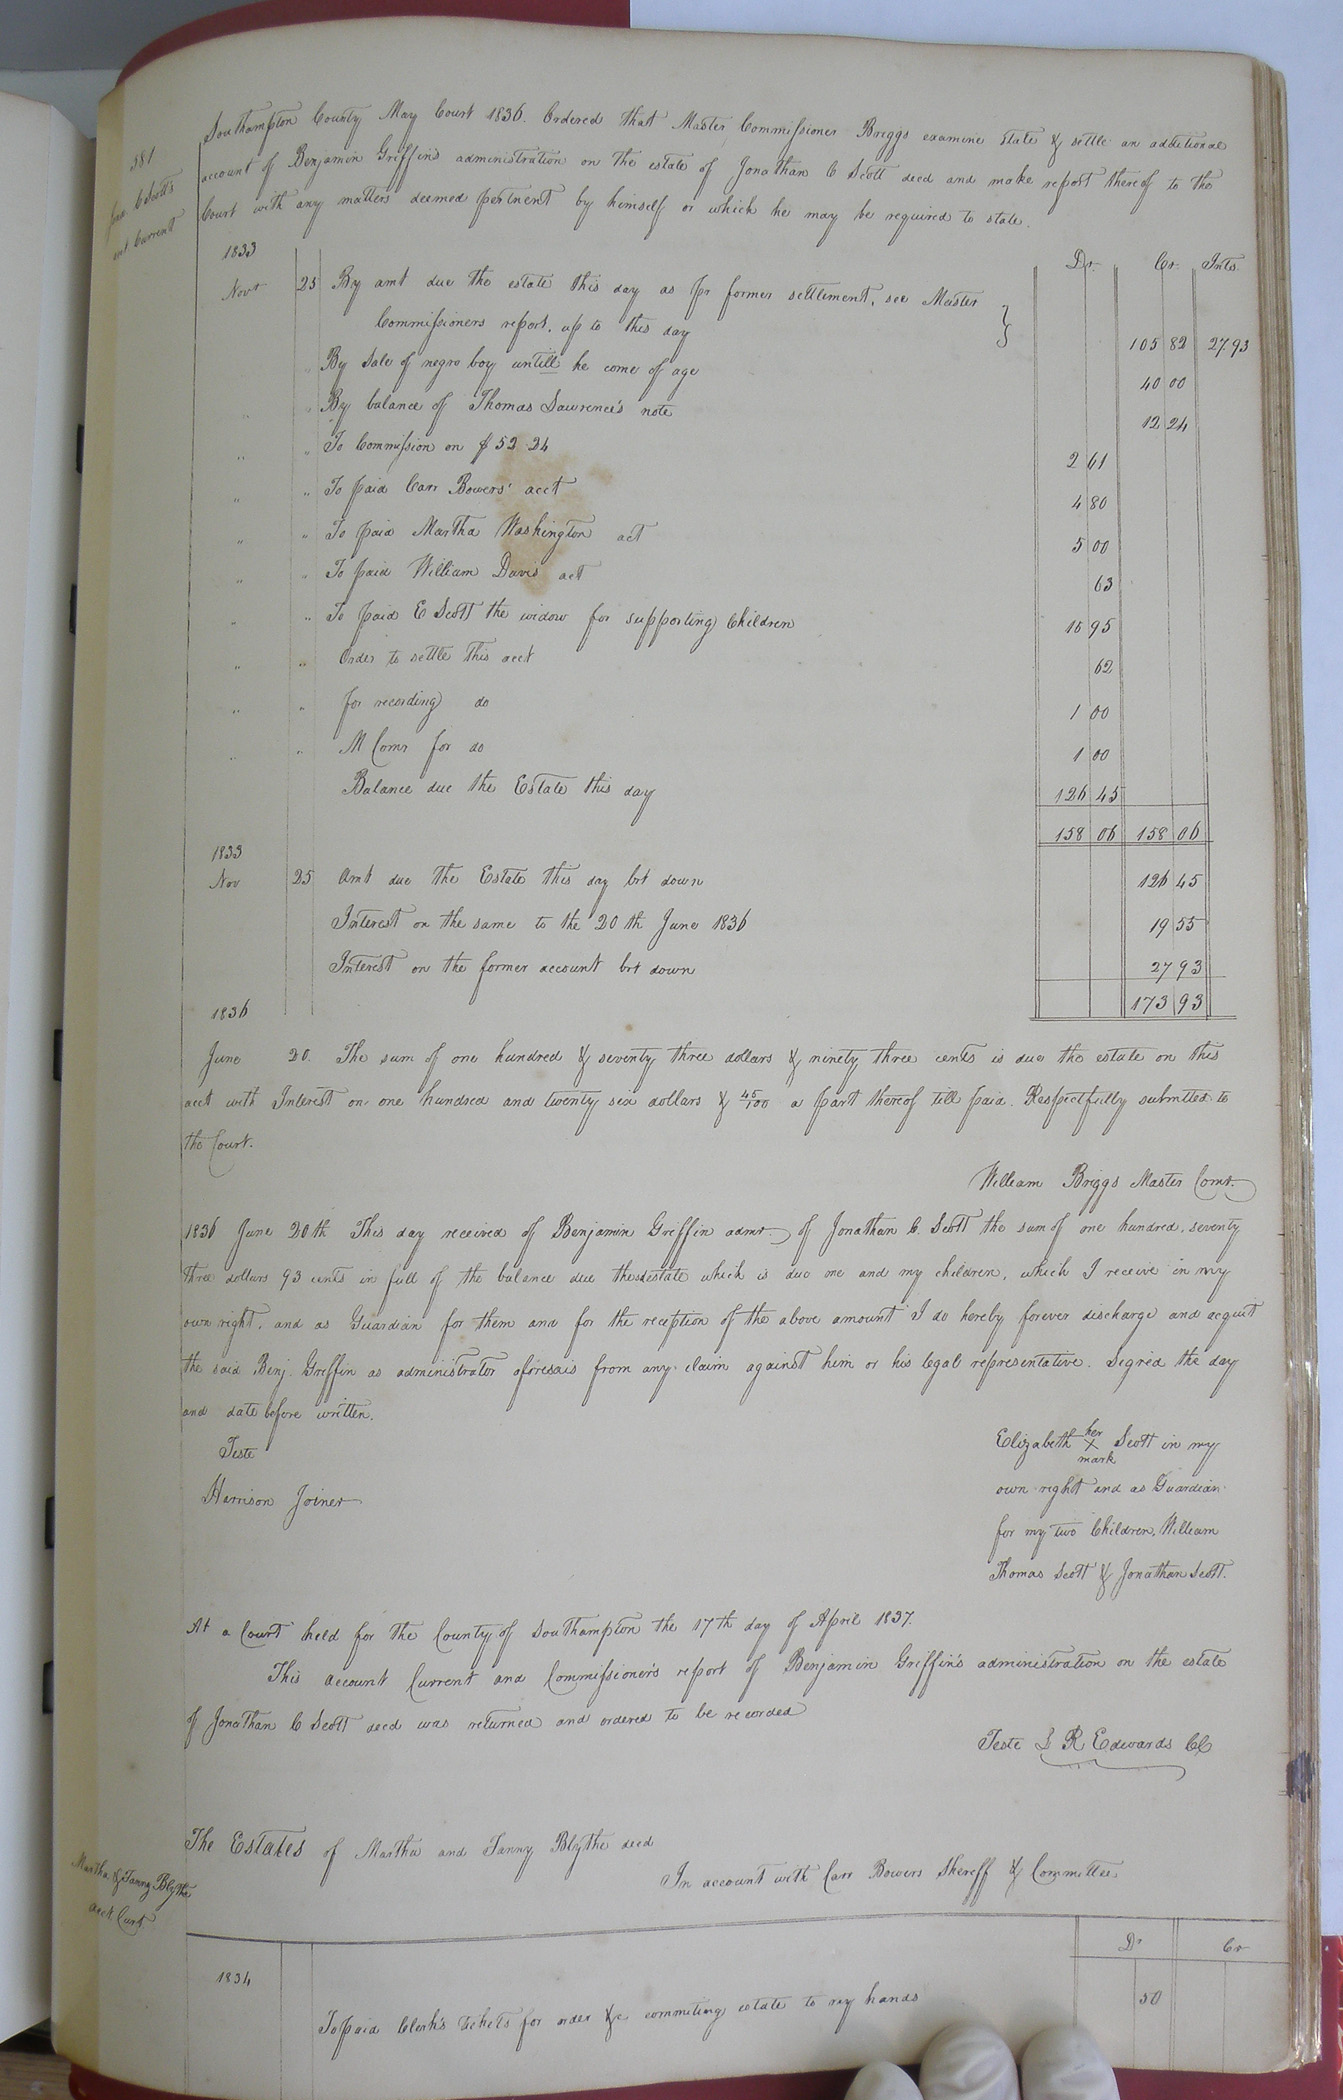 581
Jona C Scott's
act Current
Southampton County May Court 1836. Ordered that Master Commissioner Briggs examine State & settle an additional
account of Benjamin Griffins administration on the estate of Jonathan C Scott decd and make report thereof to the
Court with any matters deemed pertnent by himself or which he may be required to state.
1833 Dr. Cr. Ints.
Novr 25 By amt due the estate this day as pr former settlement, see Master
Commissioners report, up to this day 105 82 27.93
" By Sale of negro boy untill he come of age 40 00
" " By balance of Thomas Lawrence's note 12 24
" " To Commission on $52.24 2 61
" " To paid Carr Bowers' acct 4 80
" " To paid Martha Washington act 5 00
" " To paid William Davis act 63
" " To paid E Scott the widow for supporting Children 15 95
" " Order to settle this acct 62
" " for recording do 1 00
" " M Comr for do 1 00
Balance due the Estate this day 126 45
158 06 158 06
1833
Nov 25 Amt due the Estate this day brt down 126 45
Interest on the same to the 20th June 1836 19 55
Interest on the former account brt down 27 93
173 93
1836
June 20. The sum of one hundred & seventy three dollars & ninety three cents is due the estate on this
acct with Interest on one hundred and twenty six dollars & 45/100 a part thereof till paid. Respectfully submitted to
the Court.
William Briggs Master Comr.
1836 June 20th This day received of Benjamin Griffin admr. of Jonathan C. Scott the sum of one hundred, seventy
three dollars 93 cents in full of the balance due the estate which is due me and my children, which I receive in my
own right, and as Guardian for them and for the reception of the above amount I do hereby forever discharge and acquit
the said Benj. Griffin as administrator aforesais from any claim against him or his legal representative. Signed the day
and date before written.
Teste Elizabeth her X mark Scott in my
Harrison Joiner own right and as Guardian
for my two Children, William
Thomas Scott & Jonathan Scott.
At a Court held for the County of Southampton the 17th day of April 1837.
This account Current and Commissioner's report of Benjamin Griffin's administration on the estate
of Jonathan C Scott decd was returned and ordered to be recorded
Teste L R Edwards CC
Martha & Fanny Blythe
acct Curt
The Estates of Martha and Fanny Blythe decd
In account with Carr Bowers Sheriff & Committee.
Dr Cr
1834
To paid Clerk's tickets for order &c commiting estate to my hands 50